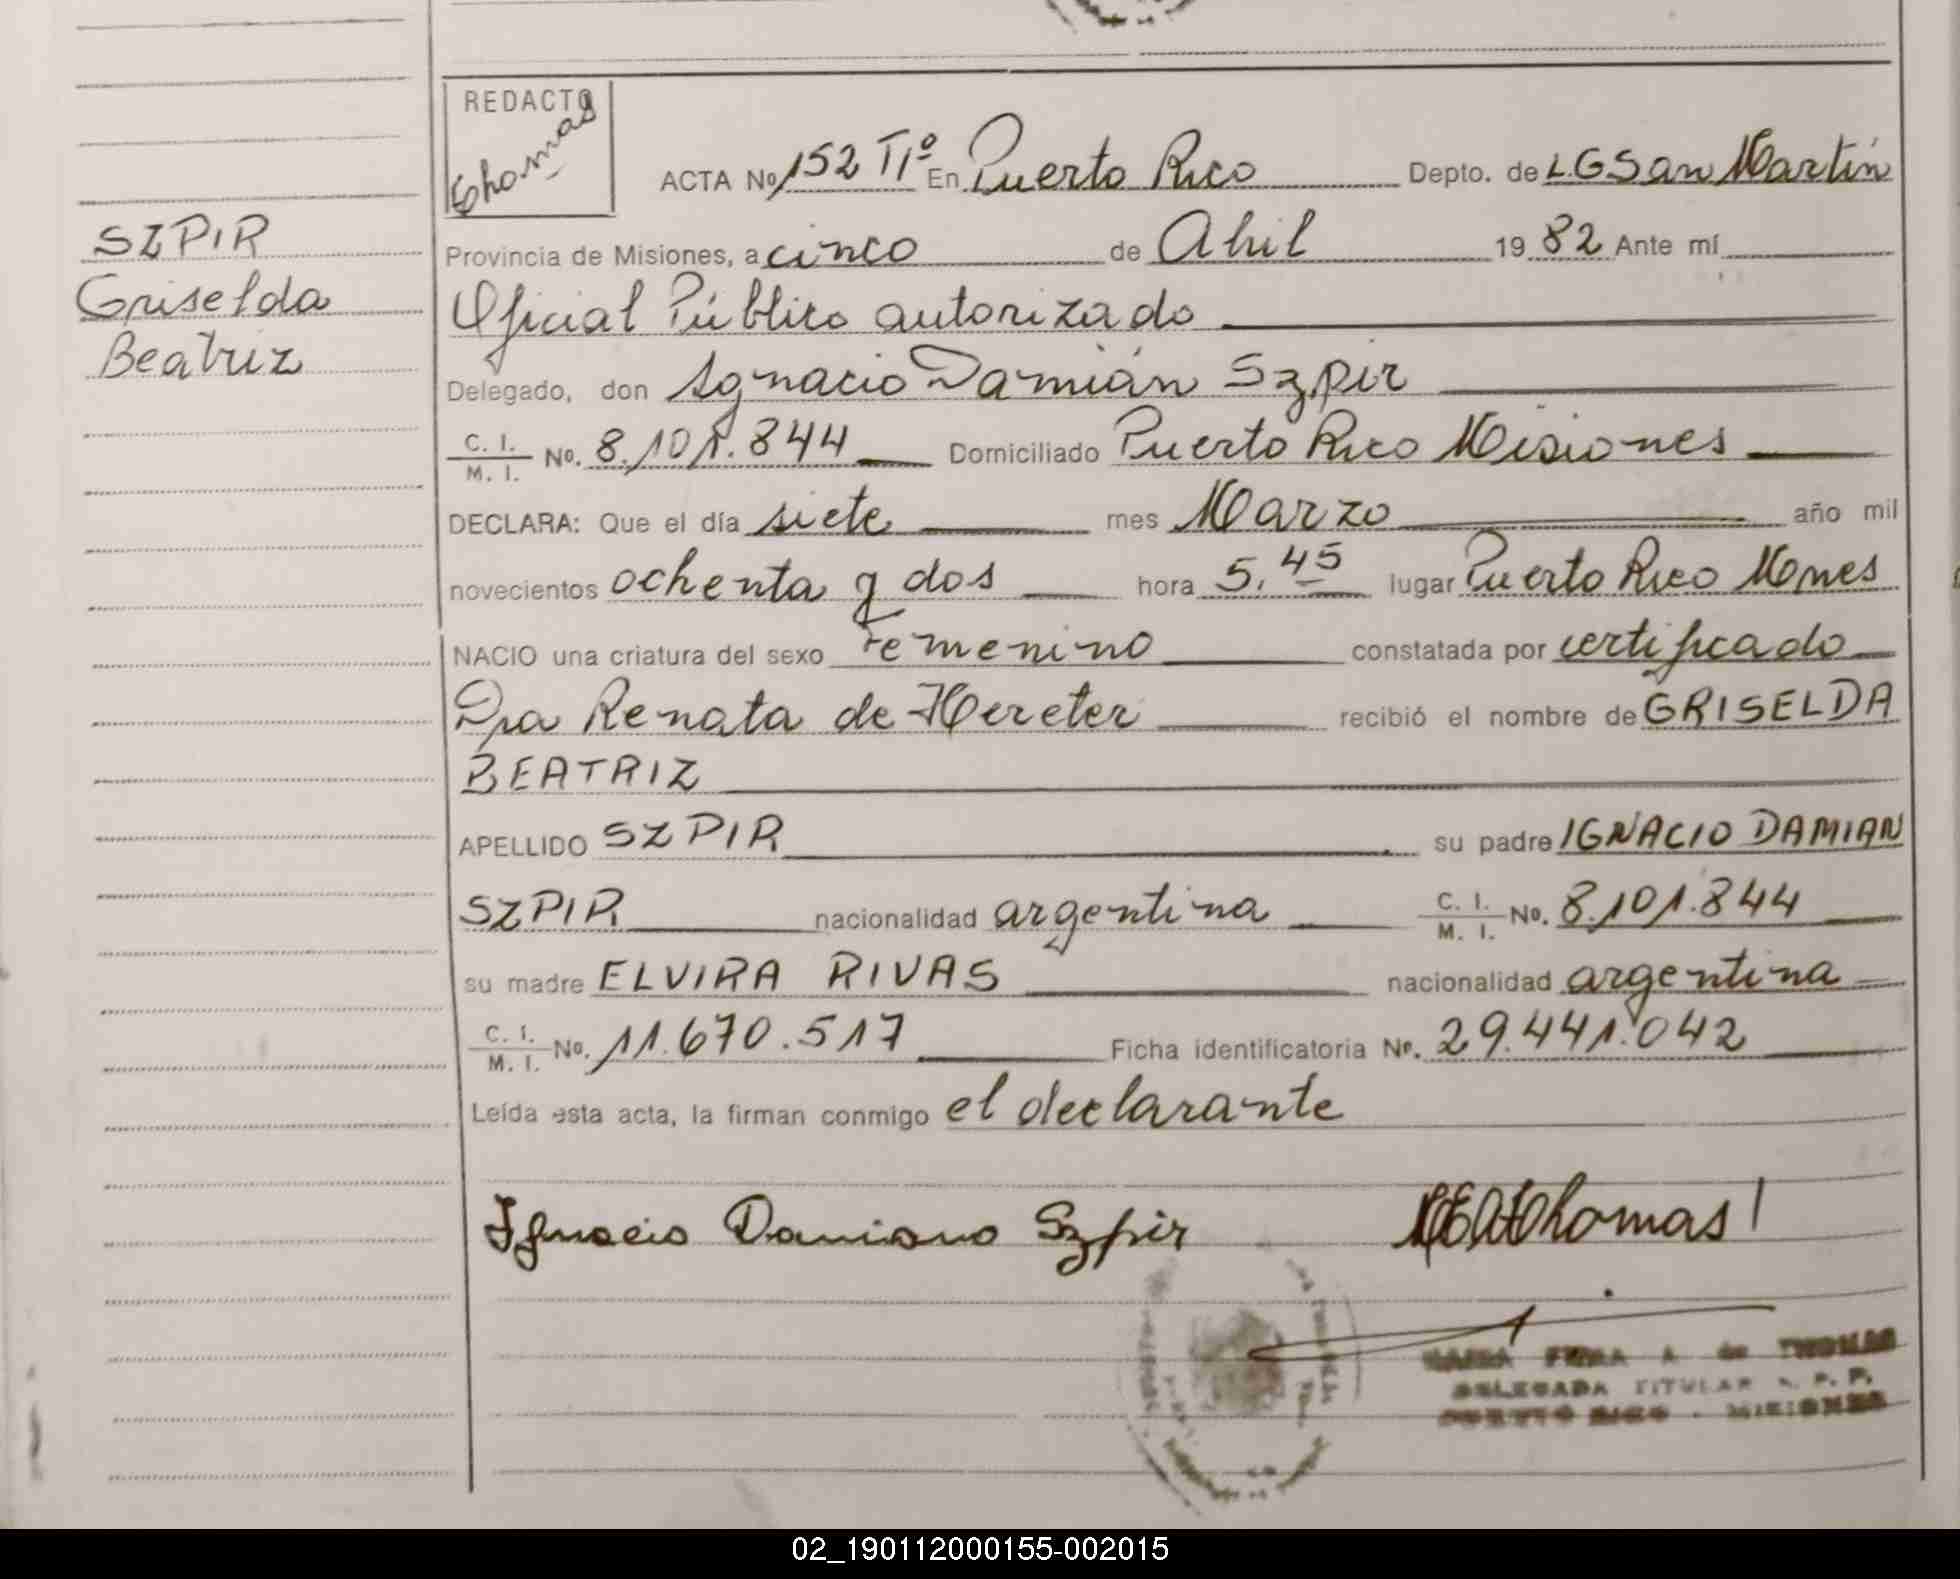 REDACTO
Thomas
ACTA No 152 TIº En Puerto Rico Depto. de L.G San Martín
SZPIR
Griselda
Beatriz
Provincia de Misiones, a cinco de Abril 19 82 Ante mí
Oficial Público autorizado
Delegado, don Ignacio Damián Szpir
C. I. / M. I. No. 8.101.844 Domiciliado Puerto Rico Misiones
DECLARA: Que el día siete mes Marzo año mil
novecientos ochenta y dos hora 5.45 lugar Puerto Rico Mones
NACIO una criatura del sexo Femenino constatada por certificado
Dra Renata de Hereter recibió el nombre de GRISELDA
BEATRIZ
APELLIDO SZPIR su padre IGNACIO DAMIAN
SZPIR nacionalidad argentina C. I. / M. I. No. 8.101.844
su madre ELVIRA RIVAS nacionalidad argentina
C. I. / M. I. No. 11.670.517 Ficha identificatoria No. 29.441.042
Leída esta acta, la firman conmigo el declarante
Ignacio Damiano Szpir
Thomas
A. de THOMAS
DELEGADA TITULAR R. P. P.
PUERTO RICO - MISIONES
02_190112000155-002015